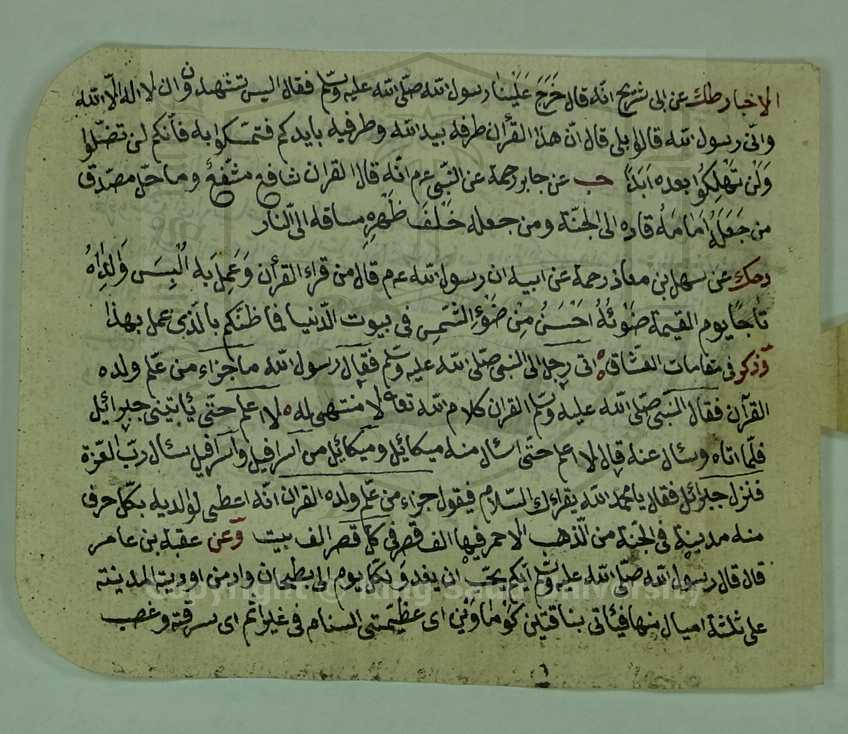 الاخبار طك عن ابى شريح انّه قال خَرَجَ عَلَيْنَا رسول الله صلّى الله عليه وسلّم فقال اليس تشهدون ان لا اله الّا الله
وانّى رسول الله قالوا بلى قال انّ هذا القرأن طرفه بيد الله وطرفه بايديكم فتمسّكوا به فأنكم لن تضلّوا
وَلَن تَهْلِكُوا بعده اَبَدًا حب عن جابر رحمة عن النّبى ع م انّه قال القران شافع مشفّع وماحل مصدّق
من جَعَلَهُ اَمَامَهُ قاده الى الجنّة ومن جعله خَلْفَ ظَهْرِهِ ساقه الى النار
دحك عن سهل بن معاذ رحمة عن ابيه ان رسول الله ع م قال من قراء القرأن وَعَمِلَ به اُلْبِسَ وَالِدَاهُ
تاجًا يوم القيمة ضَوْئُهُ اَحْسَنُ مِنْ ضَوْءِ الشَّمْسِ فى بيوت الدّنيا فما ظنّكم بالّذى عمل بهذا
وذكر فى مقامات العشّاق اتى رجل الى النبى صلّى الله عليه وسلّم فقال رسول الله ما جزاء من علّم ولده
القرآن فقال النّبى صلّى الله عليه وسلّم القران كلام الله تعه لا منتهى له لا اعلم حتّى يأتينى جبرائيل
فلمّا اتاه وسئال عنه قال لا اعلم حتّى اسئال منه ميكائيل وميكائيل من اسرافيل واسرافيل سئال ربّ العزّة
فنزل جبرائل فقال يا محمد الله يقراءك السّلام فيقول جزاء من علّم ولده القران انّه اعطى لوالديه بكلّ حرف
منه مدينة فى الجنّة من الّذهب الاحمر فيها الف قصر فى كلّ قصر الف بيت وعن عقبة بن عامر
قال قال رسول الله صلّى الله عليه وسلّم ايّكم يحبّ ان يغدو بكلّ يوم الى بطحان واد من اودية المدينة
على ثلثة اميال منها فيأتى بناقتين كَوْمَاوَيْن اى عظيمتى السنام فى غير اثم اى سرقة وغصب
Copyright © King Saud University